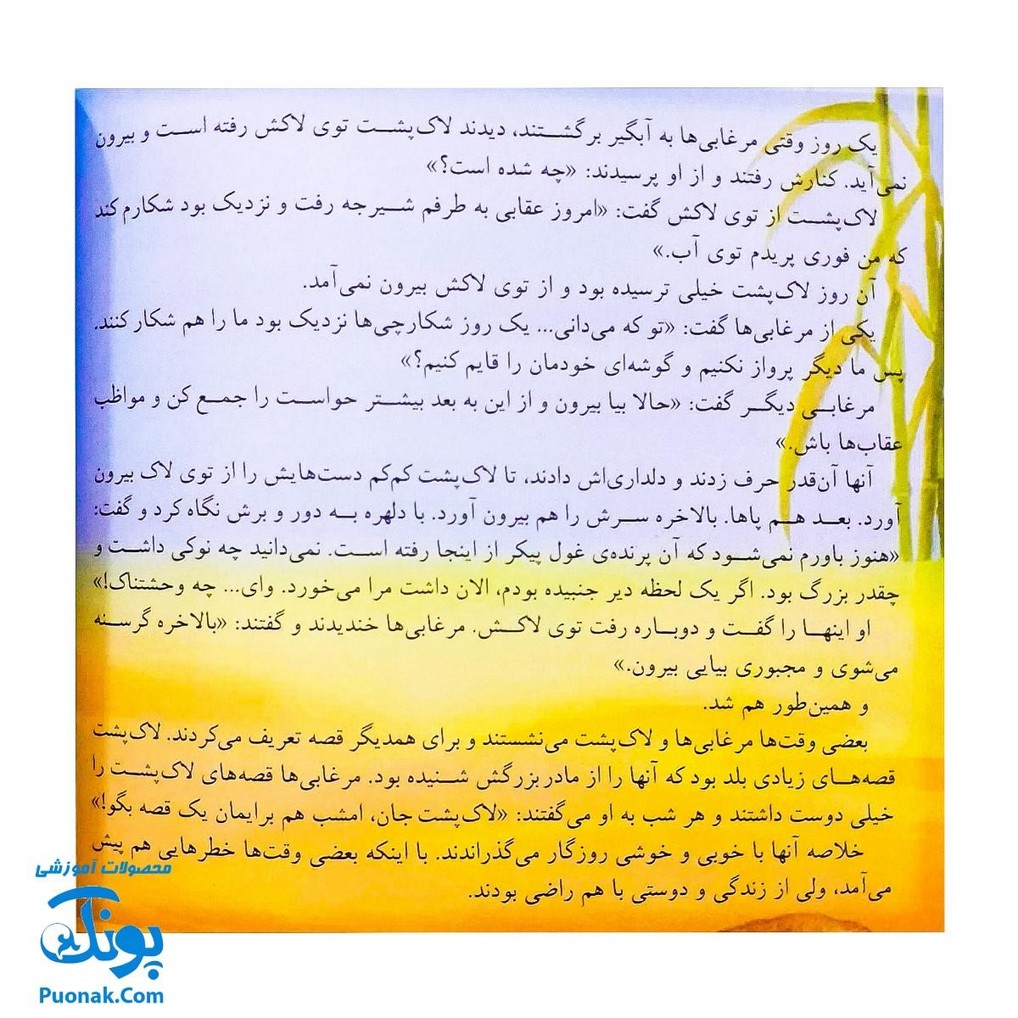 یک روز وقتی مرغابی‌ها به آبگیر برگشتند، دیدند لاک‌پشت توی لاکش رفته است و بیرون
نمی‌آید. کنارش رفتند و از او پرسیدند: «چه شده است؟»
لاک‌پشت از توی لاکش گفت: «امروز عقابی به طرفم شیرجه رفت و نزدیک بود شکارم کند
که من فوری پریدم توی آب.»
آن روز لاک‌پشت خیلی ترسیده بود و از توی لاکش بیرون نمی‌آمد.
یکی از مرغابی‌ها گفت: «تو که می‌دانی... یک روز شکارچی‌ها نزدیک بود ما را هم شکار کنند.
پس ما دیگر پرواز نکنیم و گوشه‌ای خودمان را قایم کنیم؟»
مرغابی دیگر گفت: «حالا بیا بیرون و از این به بعد بیشتر حواست را جمع کن و مواظب
عقاب‌ها باش.»
آنها آن‌قدر حرف زدند و دلداری‌اش دادند، تا لاک‌پشت کم‌کم دست‌هایش را از توی لاک بیرون
آورد. بعد هم پاها. بالاخره سرش را هم بیرون آورد. با دلهره به دور و برش نگاه کرد و گفت:
«هنوز باورم نمی‌شود که آن پرنده‌ی غول پیکر از اینجا رفته است. نمی‌دانید چه نوکی داشت و
چقدر بزرگ بود. اگر یک لحظه دیر جنبیده بودم، الان داشت مرا می‌خورد. وای... چه وحشتناک!»
او اینها را گفت و دوباره رفت توی لاکش. مرغابی‌ها خندیدند و گفتند: «بالاخره گرسنه
می‌شوی و مجبوری بیایی بیرون.»
و همین‌طور هم شد.
بعضی وقت‌ها مرغابی‌ها و لاک‌پشت می‌نشستند و برای همدیگر قصه تعریف می‌کردند. لاک‌پشت
قصه‌های زیادی بلد بود که آنها را از مادربزرگش شنیده بود. مرغابی‌ها قصه‌های لاک‌پشت را
خیلی دوست داشتند و هر شب به او می‌گفتند: «لاک‌پشت جان، امشب هم برایمان یک قصه بگو!»
خلاصه آنها با خوبی و خوشی روزگار می‌گذراندند. با اینکه بعضی وقت‌ها خطرهایی هم پیش
می‌آمد، ولی از زندگی و دوستی با هم راضی بودند.
محصولات آموزشی
پونک
Puonak.Com